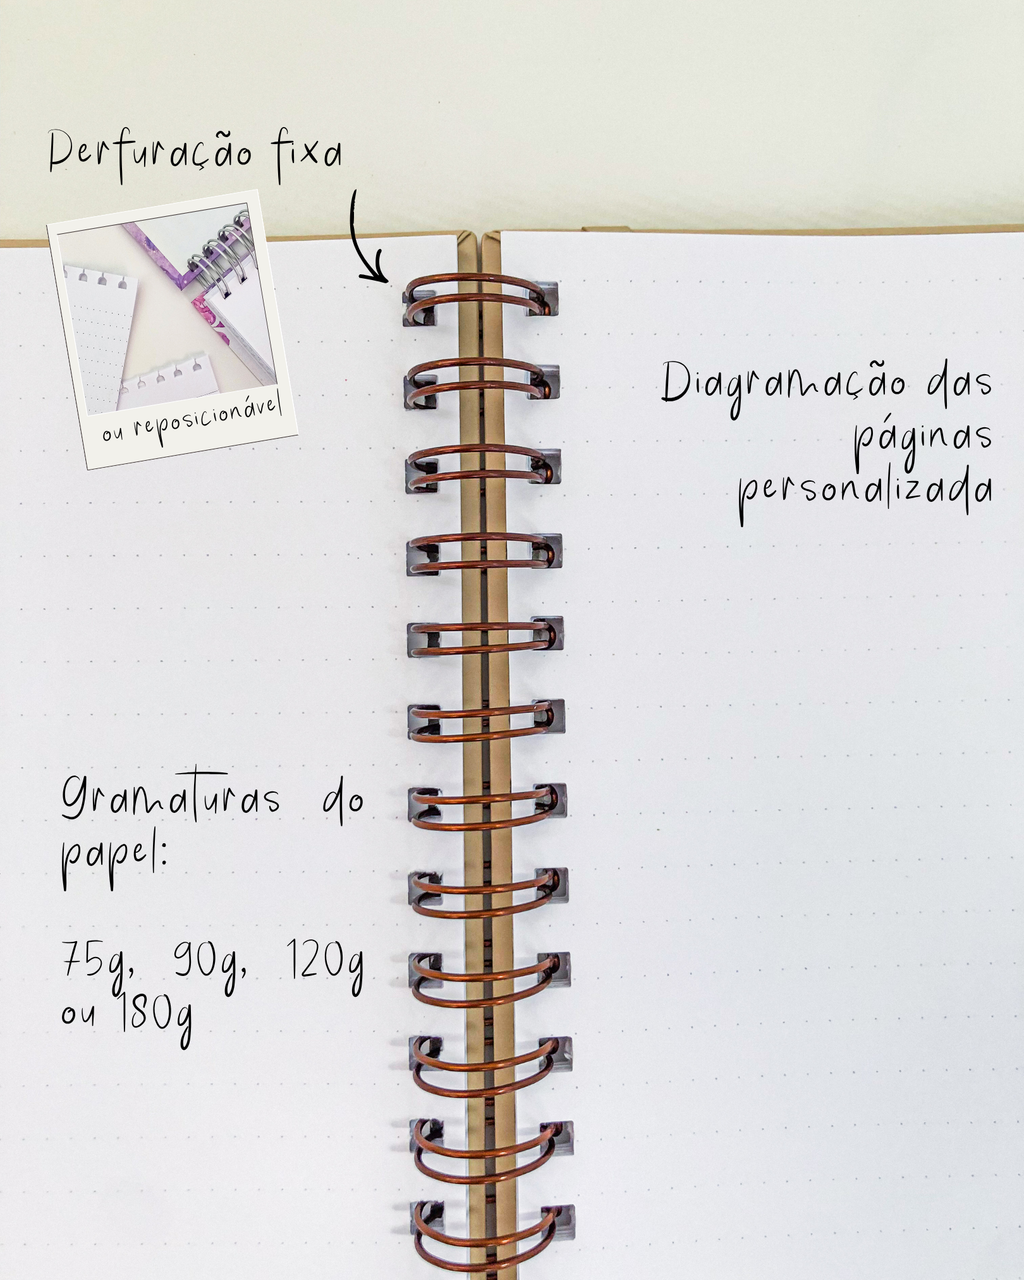 Perfuração fixa
ou reposicionável
Diagramação das
páginas
personalizada
Gramaturas do
papel:
75g, 90g, 120g
ou 180g